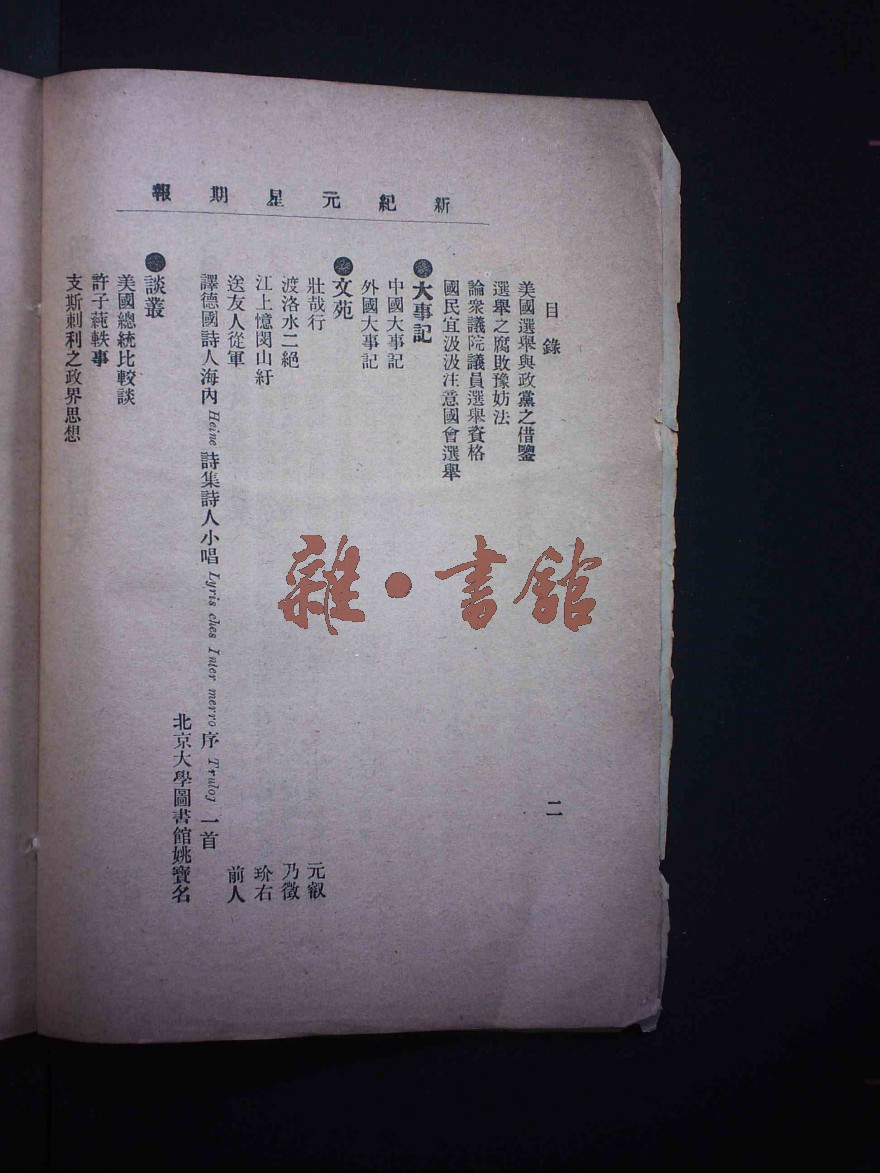 新紀元星期報
目錄
二
美國選舉與政黨之借鑒
選舉之腐敗豫妨法
論衆議院議員選舉資格
國民宜汲汲注意國會選舉
大事記
中國大事記
外國大事記
文苑
壯哉行 元叡
渡洛水二絕 乃徵
江上憶閔山紆 玠右
送友人從軍 前人
譯德國詩人海內 Heine 詩集詩人小唱 Lyris ches Inter merro 序 Trulog 一首
北京大學圖書館姚寶名
談叢
美國總統比較談
許子蒓軼事
支斯刺利之政界思想
雜·書館